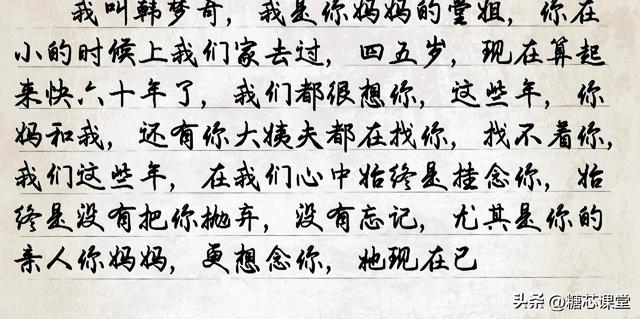 我叫韩梦奇，我是你妈妈的堂姐，你在
小的时候上我们家去过，四五岁，现在算起
来快六十年了，我们都很想你，这些年，你
妈和我，还有你大姨夫都在找你，找不着你，
我们这些年，在我们心中始终是挂念你，始
终是没有把你抛弃，没有忘记，尤其是你的
亲人你妈妈，更想念你，她现在已
头条 @糖芯课堂